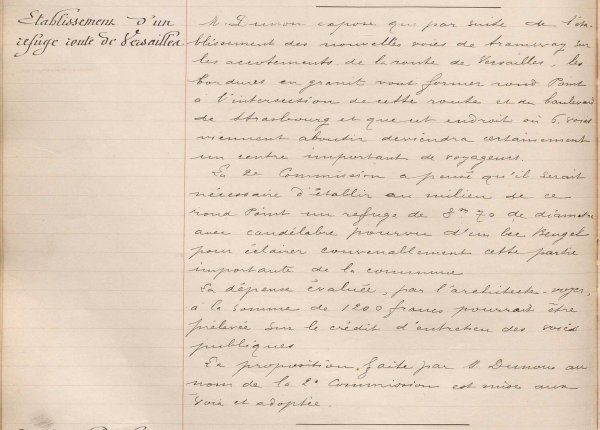 Etablissement d'un
refuge route de Versailles
M. Dunon expose que par suite de l'éta-
blissement des nouvelles voies de tramway sur
les accotements de la route de Versailles, les
bordures en granit vont former rond Point
à l'intersection de cette route et du boulevard
de Strasbourg et que cet endroit où 6 voies
viennent aboutir deviendra certainement
un centre important de voyageurs.
La 2e Commission a pensé qu'il serait
nécessaire d'établir au milieu de ce
rond Point un refuge de 8m 70 de diamètre
avec candélabre pourvu d'un bec Bengel
pour éclairer convenablement cette partie
importante de la commune
La dépense évaluée, par l'architecte-voyer,
à la somme de 1200 francs pourrait être
prélevée sur le crédit d'entretien des voies
publiques
La proposition faite par M. Dunon au
nom de la 2e Commission est mise aux
voix et adoptée.